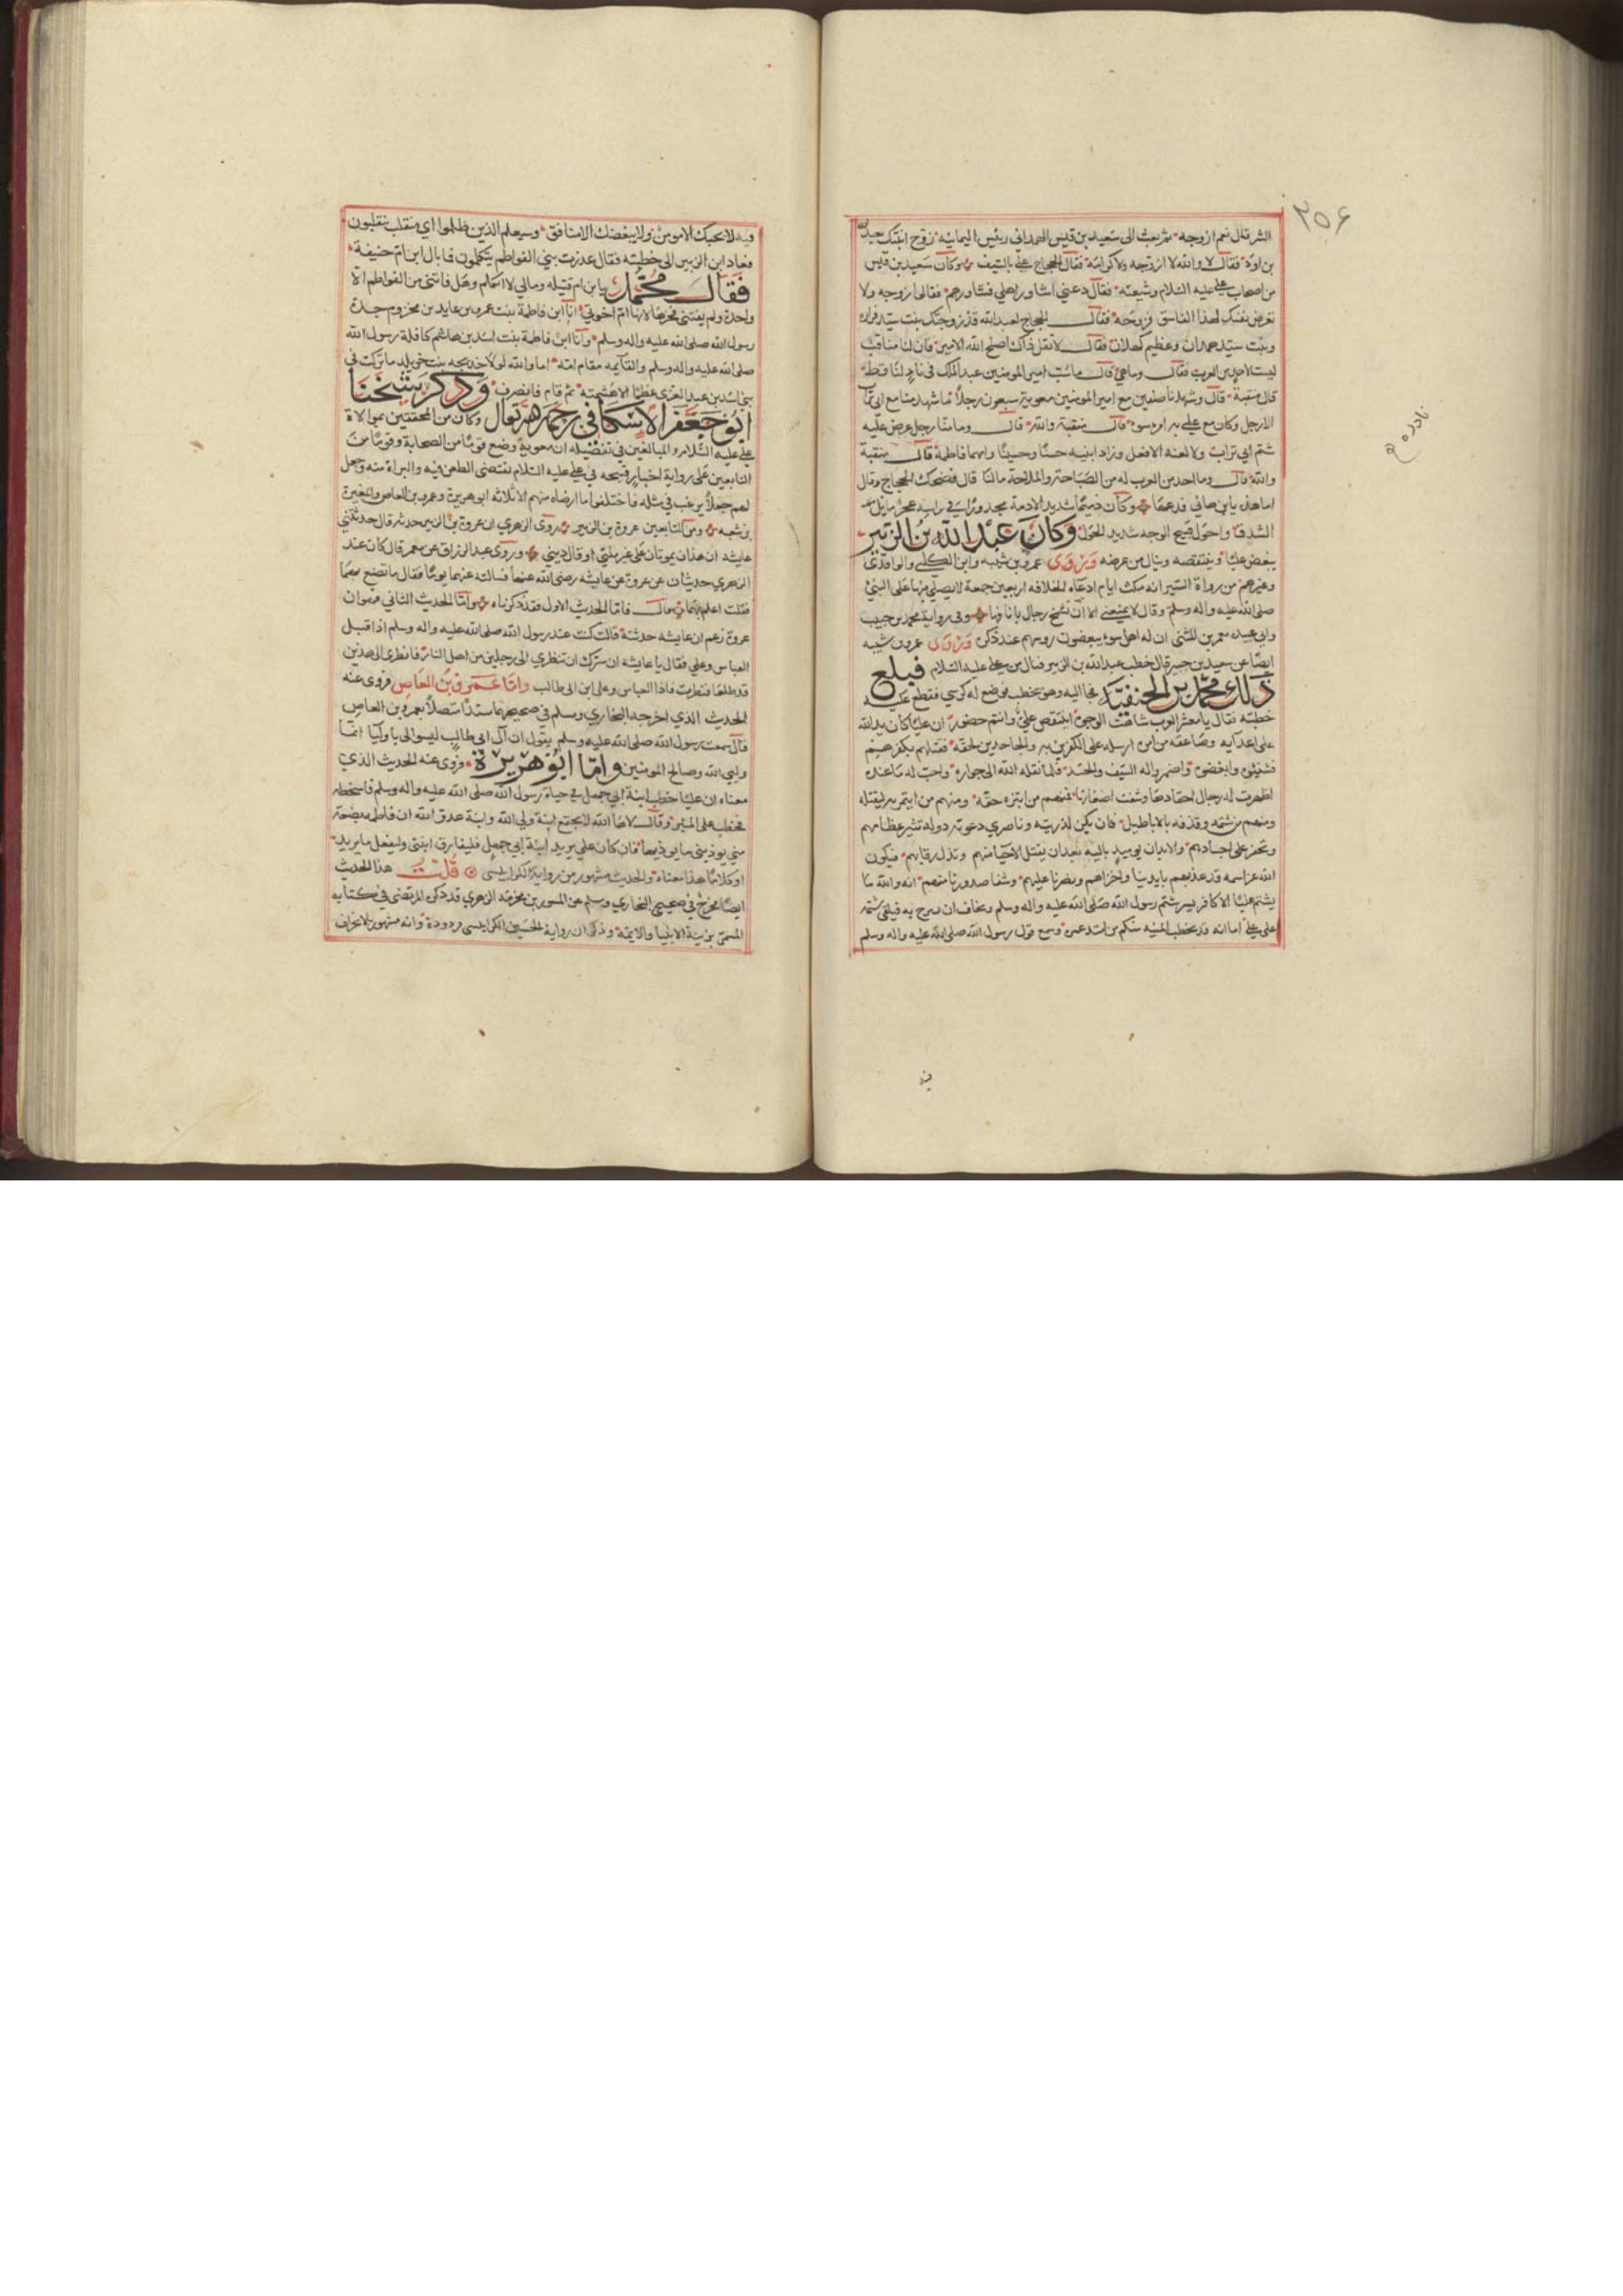 ٢٥٦
الشر قال نعم ازوجه ثم بعث الى سعيد بن قيس الهمداني رئيس اليمانية زوج ابنتك بعبد الله
بن اود فقال لا والله لا ازوجه ولا كرامة فقال الحجاج علي بالسيف وكان سعيد بن قيس
من اصحاب علي عليه السلام وشيعته فقال دعني اشاور اهلي فشاورهم فقالوا زوجه ولا
تعرض نفسك لهذا الفاسق فزوجه فقال الحجاج لعبد الله قد زوجتك بنت سيد فزاره
وبنت سيد همدان وعظيم كهلان فقال لا تقل ذاك اصلح الله الامير فان لنا مناقب
ليست لاحد من العرب فقال وما هي قال ما سب امير المومنين عبد الملك في ناد لنا قط
قال منقبة قال وشهد منا صفين مع امير المومنين معوية سبعون رجلا ما شهد منا مع ابي تراب
الا رجل وكان مع علي امرء سوء قال منقبة والله قال وما منا رجل عرض عليه
شتم ابي تراب ولا لعنه الا فعل وزاد ابنيه حسنا وحسينا وامهما فاطمة قال منقبة
والله قال وما احد من العرب له من الصباحة والملاحة ما لنا قال فضحك الحجاج وقال
اما هذه يا ابن هاني فدعها وكان دميما شديد الادمة مجدورا في راسه عجر مايل
الشدق احول قبيح الوجه شديد الحول وكان عبد الله بن الزبير
يبغض عليا وينتقصه وينال من عرضه وروى عمر بن شبه وابن الكلبي والواقدي
وغيرهم من رواة السير انه مكث ايام ادعاء الخلافه اربعين جمعة لا يصلي فيها على النبي
صلى الله عليه واله وسلم وقال لا يمنعني الا ان تشمخ رجال بانافها وفي رواية محمد بن حبيب
وابي عبيده معمر بن المثنى ان له اهل سوء ينغضون روسهم عند ذكره وروى عمر بن شبه
ايضا عن سعيد بن جبير قال خطب عبد الله بن الزبير فنال من علي عليه السلام فبلغ
ذلك محمد بن الحنفية فجا اليه وهو يخطب فوضع له كرسي فقطع عليه
خطبته فقال يا معشر العرب شاهت الوجوه اينتقص علي وانتم حضور ان عليا كان يد الله
على اعدايه وصاعقه من امره ارسله على الكافرين به والجاحدين لحقه فقتلهم بكفرهم
فشنئوه وابغضوه واضمروا له السيف والحسد فلما نقله الله الى جواره واحب له ما عنده
اظهرت له رجال احقادها وشفت اضغانها فمنهم من ابتزه حقه ومنهم من ايتمر به ليقتله
ومنهم من شتمه وقذفه بالاباطيل فان يكن لذريته وناصري دعوته دولة تنثر عظامهم
وتحفر على اجسادهم والابدان يوميذ باليه بعد ان يقتل الاحيا منهم وتذل رقابهم فيكون
الله عز اسمه قد عذبهم بايدينا واخزاهم ونصرنا عليهم وشفا صدورنا منهم انه والله ما
يشتم عليا الا كافر يسر شتم رسول الله صلى الله عليه واله وسلم ويخاف ان يبوح به فيلقي شتمه
على علي اما انه قد تخطت المنيه منكم من امتد عمره وسمع قول رسول الله صلى الله عليه واله وسلم
فيه
فيه لا يحبك الا مومن ولا يبغضك الا منافق وسيعلم الذين ظلموا اي منقلب ينقلبون
فعاد ابن الزبير الى خطبته فقال عذرت بني الفواطم يتكلمون فما بال ابن ام حنيفة
فقال محمد يا ابن ام قتيله ومالي لا اتكلم وهل فاتني من الفواطم الا
واحدة ولم يفتني فخرها لانها ام اخوتي انا ابن فاطمة بنت عمرو بن عايد بن مخزوم جدة
رسول الله صلى الله عليه واله وسلم وانا ابن فاطمة بنت اسد بن هاشم كافلة رسول الله
صلى الله عليه واله وسلم والقايمه مقام امه اما والله لولا خديجه بنت خويلد ما تركت في
بني اسد بن عبد العزى عظما الا هشمته ثم قام فانصرف وذكر شيخنا
ابو جعفر الاسكافي رحمه الله تعالى وكان من المحققين بموالاة
علي عليه السلام والمبالغين في تفضيله ان معوية وضع قوما من الصحابة وقوما من
التابعين على رواية اخبار قبيحه في علي عليه السلام تقتضي الطعن فيه والبراة منه وجعل
لهم جعلا يرغب في مثله فاختلقوا ما ارضاه منهم الاثلاثه ابو هريرة وعمرو بن العاص والمغيرة
بن شعبه ومن التابعين عروة بن الزبير روى الزهري ان عروة بن الزبير حدثه قال حدثتني
عايشه ان هذان يموتان على غير ملتي او قال ديني وروى عبد الرزاق عن معمر قال كان عند
الزهري حديثان عن عروة عن عايشه رضي الله عنها فسالته عنهما يوما فقال ما تصنع بهما
فاما الحديث الاول فقد ذكرناه واما الحديث الثاني فهو ان
عروة زعم ان عايشه حدثته قالت كنت عند رسول الله صلى الله عليه واله وسلم اذ اقبل
العباس وعلي فقال يا عايشه ان سرك ان تنظري الى رجلين من اهل النار فانظري الى هذين
قد طلعا فنظرت فاذا العباس وعلي ابن ابي طالب واما عمرو بن العاص فروى عنه
الحديث الذي اخرجه البخاري ومسلم في صحيحهما مسندا متصلا بعمرو بن العاص
قال سمعت رسول الله صلى الله عليه وسلم يقول ان آل ابي طالب ليسوا لي باوليا انما
وليي الله وصالح المومنين واما ابو هريرة فروى عنه الحديث الذي
معناه ان عليا خطب ابنة ابي جهل في حياة رسول الله صلى الله عليه واله وسلم فاسخطه
فخطب على المنبر وقال لاها الله لا يجتمع ابنة ولي الله وابنة عدو الله ان فاطمه بضعة
مني يوذيني ما يوذيها فان كان علي يريد ابنة ابي جهل فليفارق ابنتي وليفعل ما يريد
او كلاما هذا معناه والحديث مشهور من رواية الكرابيسي قلت هذا الحديث
ايضا مخرج في صحيحي البخاري ومسلم عن المسور بن مخرمه الزهري قد ذكره المرتضى في كتابه
المسمى تنزيه الانبيا والايمة وذكر ان رواية الحسين الكرابيسي مردودة وانه مشهور بالانحراف